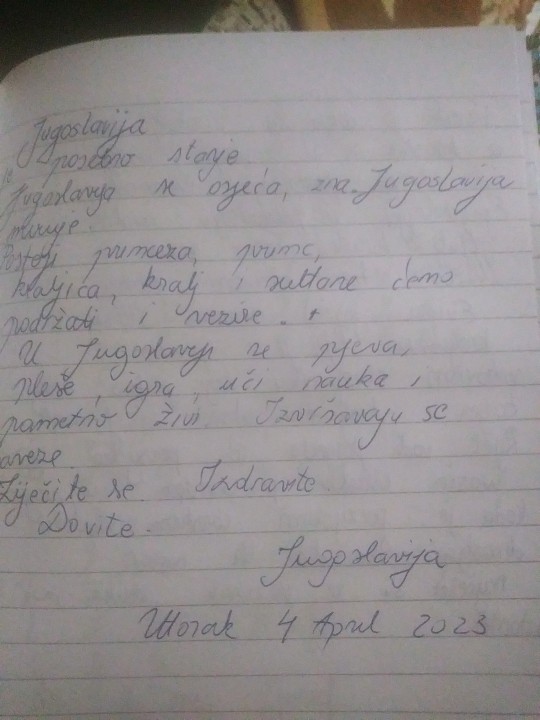 Jugoslavija
je posebno stanje
Jugoslavija se osjeća, zna. Jugoslavija
miruje.
Postoji princeza, princ,
kraljica, kralj i sultane ćemo
podržati i vezire.
U Jugoslaviji se pjeva,
pleše, igra, uči nauka,
pametno živi Izvišavaju se
aveze.
Liječite se. Izdravite.
Dovite.
Jugoslavija
Utorak 4 April 2023